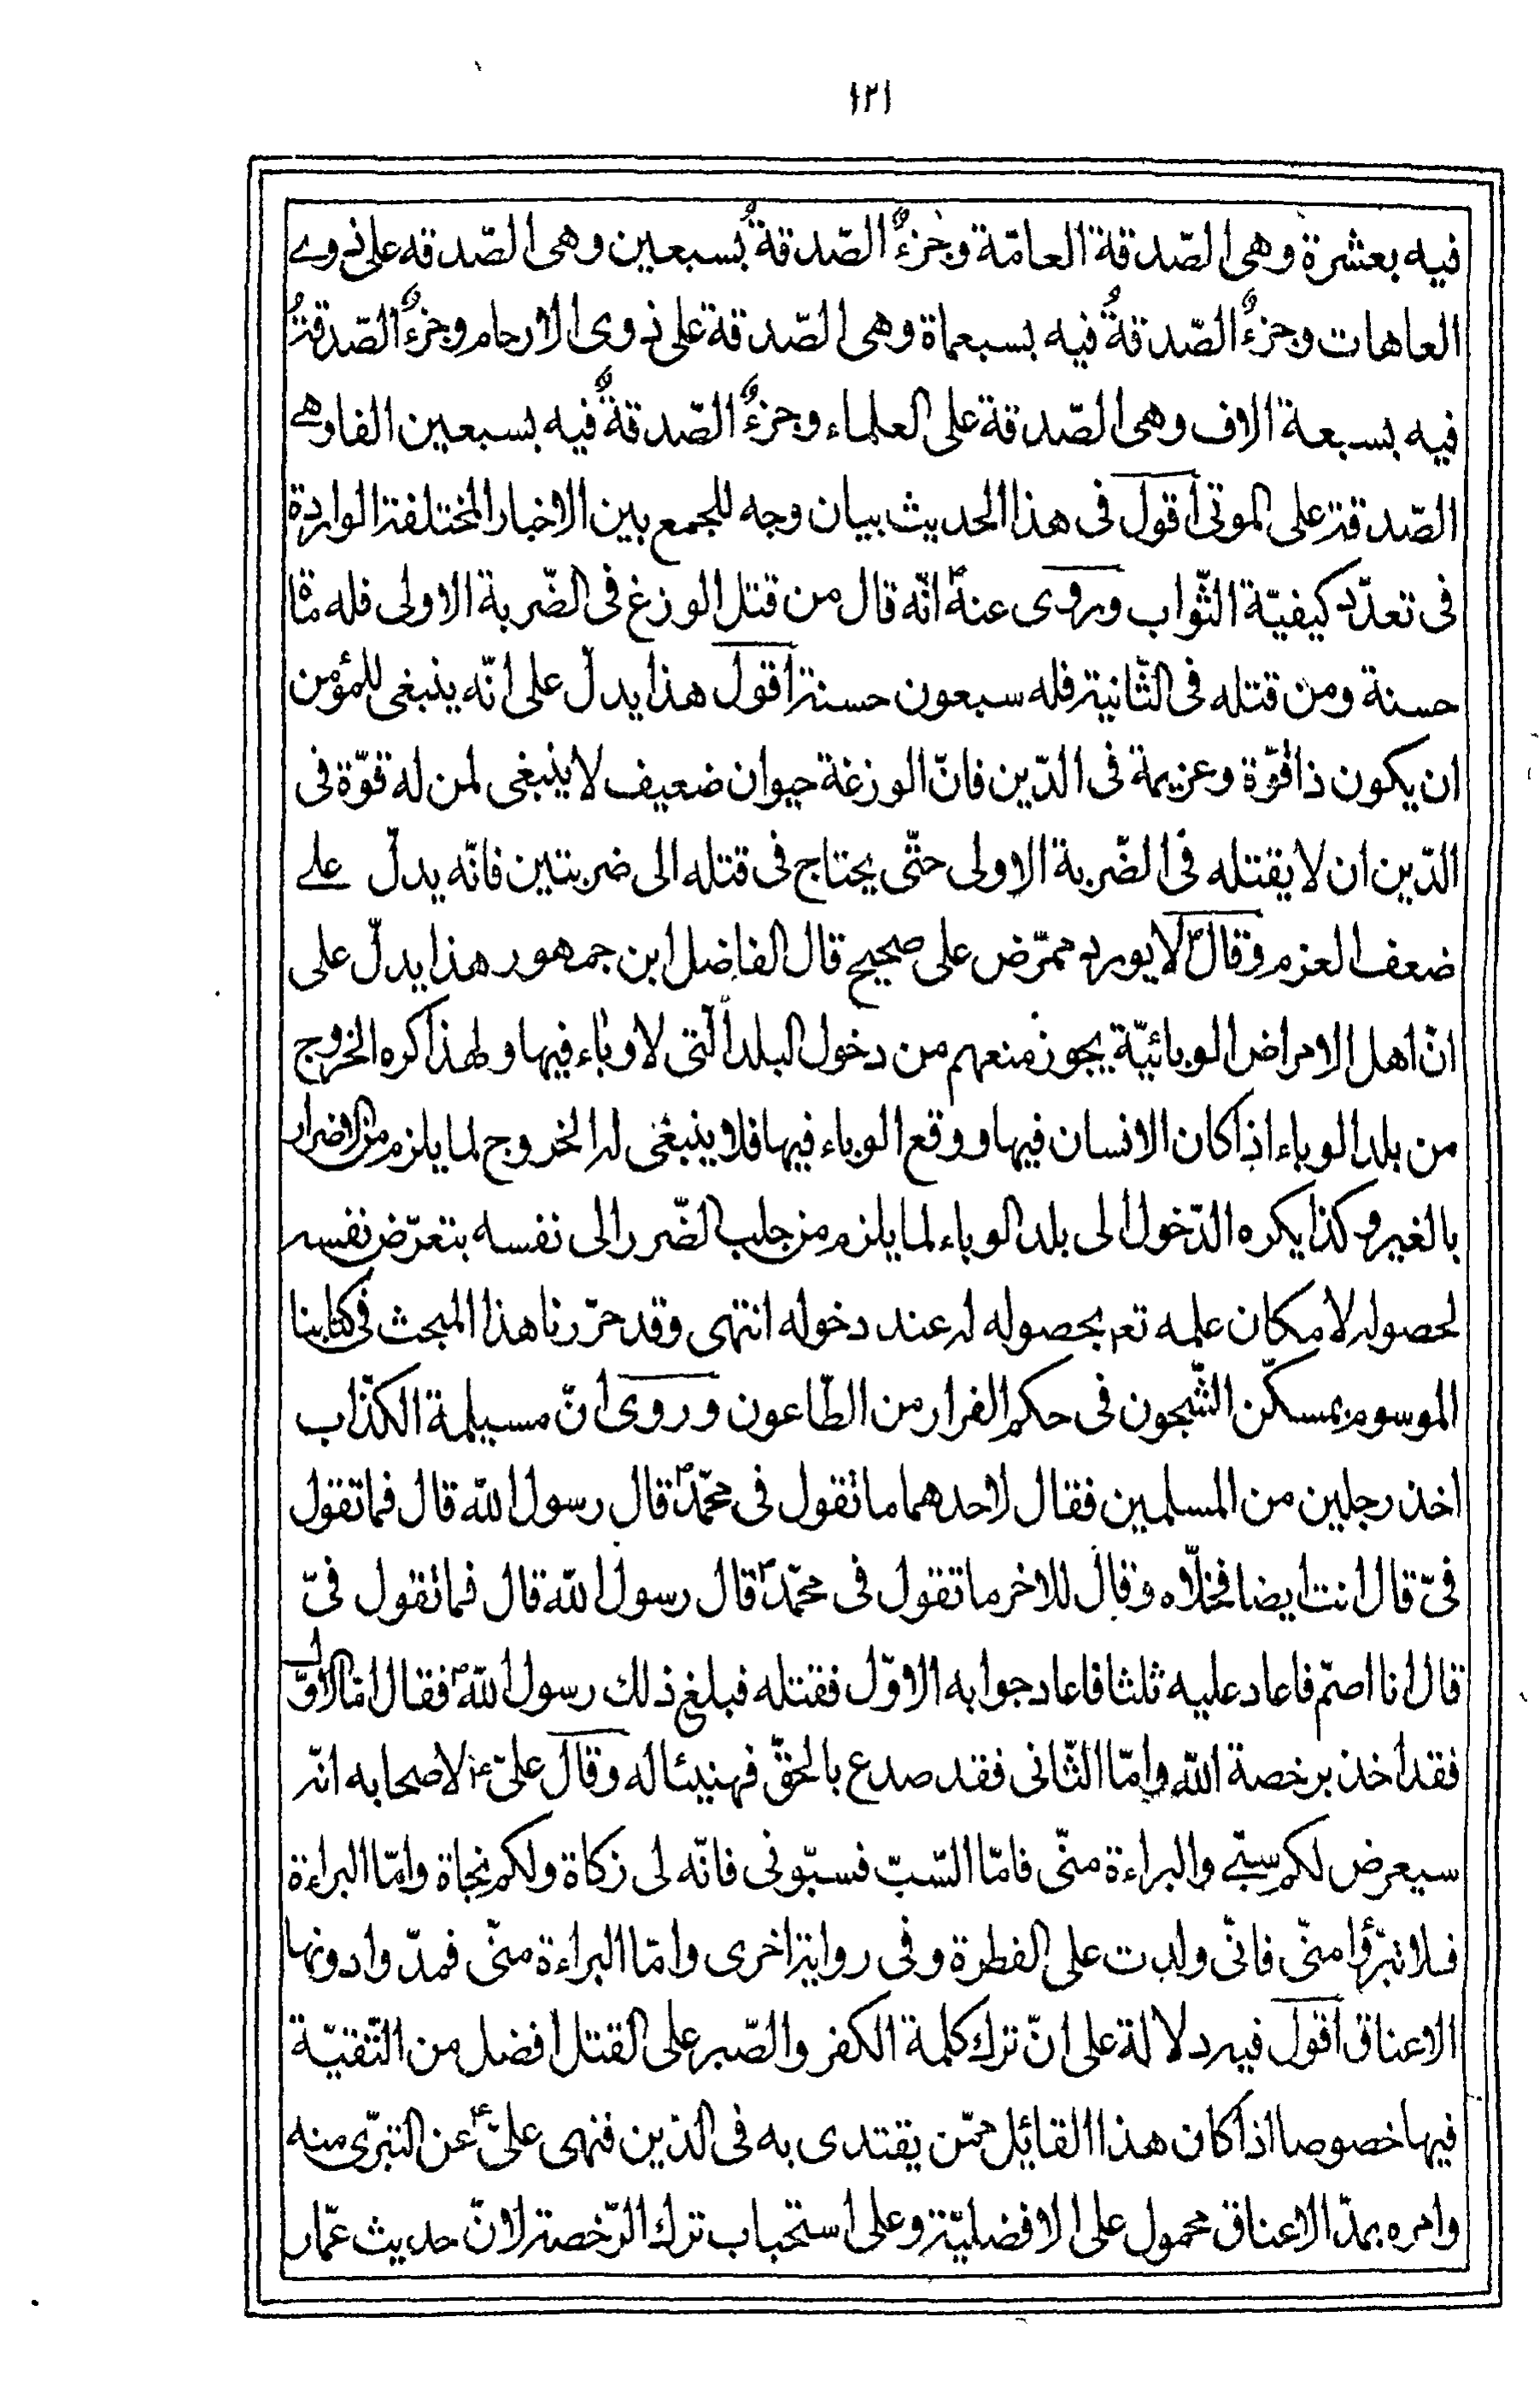 ١٢١
فيه بعشرة وهى الصّدقة العامّة وجزءٌ الصّدقةُ بسبعين وهى الصّدقه على ذوے
العاهات وجزءٌ الصّدقةُ فيه بسبعماة وهى الصّدقة على ذوى الارحام وجزءٌ الصّدقةُ
فيه بسبعة الاف وهى الصّدقة على العلماء وجزءٌ الصّدقةٌ فيه بسبعين الفا وهے
الصّدقة على الموتى اقول فى هذا الحديث بيان وجه للجمع بين الاخبار المختلفة الواردة
فى تعدّد كيفيّة الثّواب وروى عنه ص انّه قال من قتل الوزغ فى الضّربة الاولى فله مأة
حسنة ومن قتله فى الثّانية فله سبعون حسنة اقول هذا يدلّ على انّه ينبغى للمؤمن
ان يكون ذا قوّة وعزيمة فى الدّين فانّ الوزغة حيوان ضعيف لا ينبغى لمن له قوّة فى
الدّين ان لا يقتله فى الضّربة الاولى حتّى يحتاج فى قتله الى ضربتين فانّه يدلّ علے
ضعف العزم وقال ص لا يورد ممرّض على صحيح قال الفاضل ابن جمهور هذا يدلّ على
انّ اهل الامراض الوبائيّة يجوز منعهم من دخول البلد الّتى لا وباء فيها ولهذا كره الخروج
من بلد الوباء اذا كان الانسان فيها ووقع الوباء فيها فلا ينبغى له الخروج لما يلزم من الاضرار
بالغير وكذا يكره الدّخول الى بلد الوباء لما يلزم من جلب الضّرر الى نفسه بتعرّض نفسه
لحصوله لامكان علمه تعم بحصوله له عند دخوله انتهى وقد حرّرنا هذا المبحث فى كتابنا
الموسوم بمسكّن الشّجون فى حكم الفرار من الطّاعون وروى انّ مسيلمة الكذّاب
اخذ رجلين من المسلمين فقال لاحدهما ما تقول فى محمّد ص قال رسول اللّه قال فما تقول
فىّ قال انت ايضا فخلّاه وقال للاخر ما تقول فى محمّد ص قال رسول اللّه قال فما تقول فىّ
قال انا اصمّ فاعاد عليه ثلثا فاعاد جوابه الاوّل فقتله فبلغ ذلك رسول اللّه ص فقال امّا الاوّل
فقد اخذ برخصة اللّه وامّا الثّانى فقد صدع بالحقّ فهنيئا له وقال علىّ ع لاصحابه انّه
سيعرض لكم سبّے والبراءة منّى فامّا السّبّ فسبّونى فانّه لى زكاة ولكم نجاة وامّا البراءة
فلا تبرّؤا منّى فانّى ولدت على الفطرة وفى رواية اخرى وامّا البراءة منّى فمدّوا دونها
الاعناق اقول فيه دلالة على انّ ترك كلمة الكفر والصّبر على القتل افضل من التّقيّة
فيها خصوصا اذا كان هذا القائل ممّن يقتدى به فى الدّين فنهى علىّ ع عن التبرّى منه
وامره بمدّ الاعناق محمول على الافضليّة وعلى استحباب ترك الرّخصة لانّ حديث عمّار